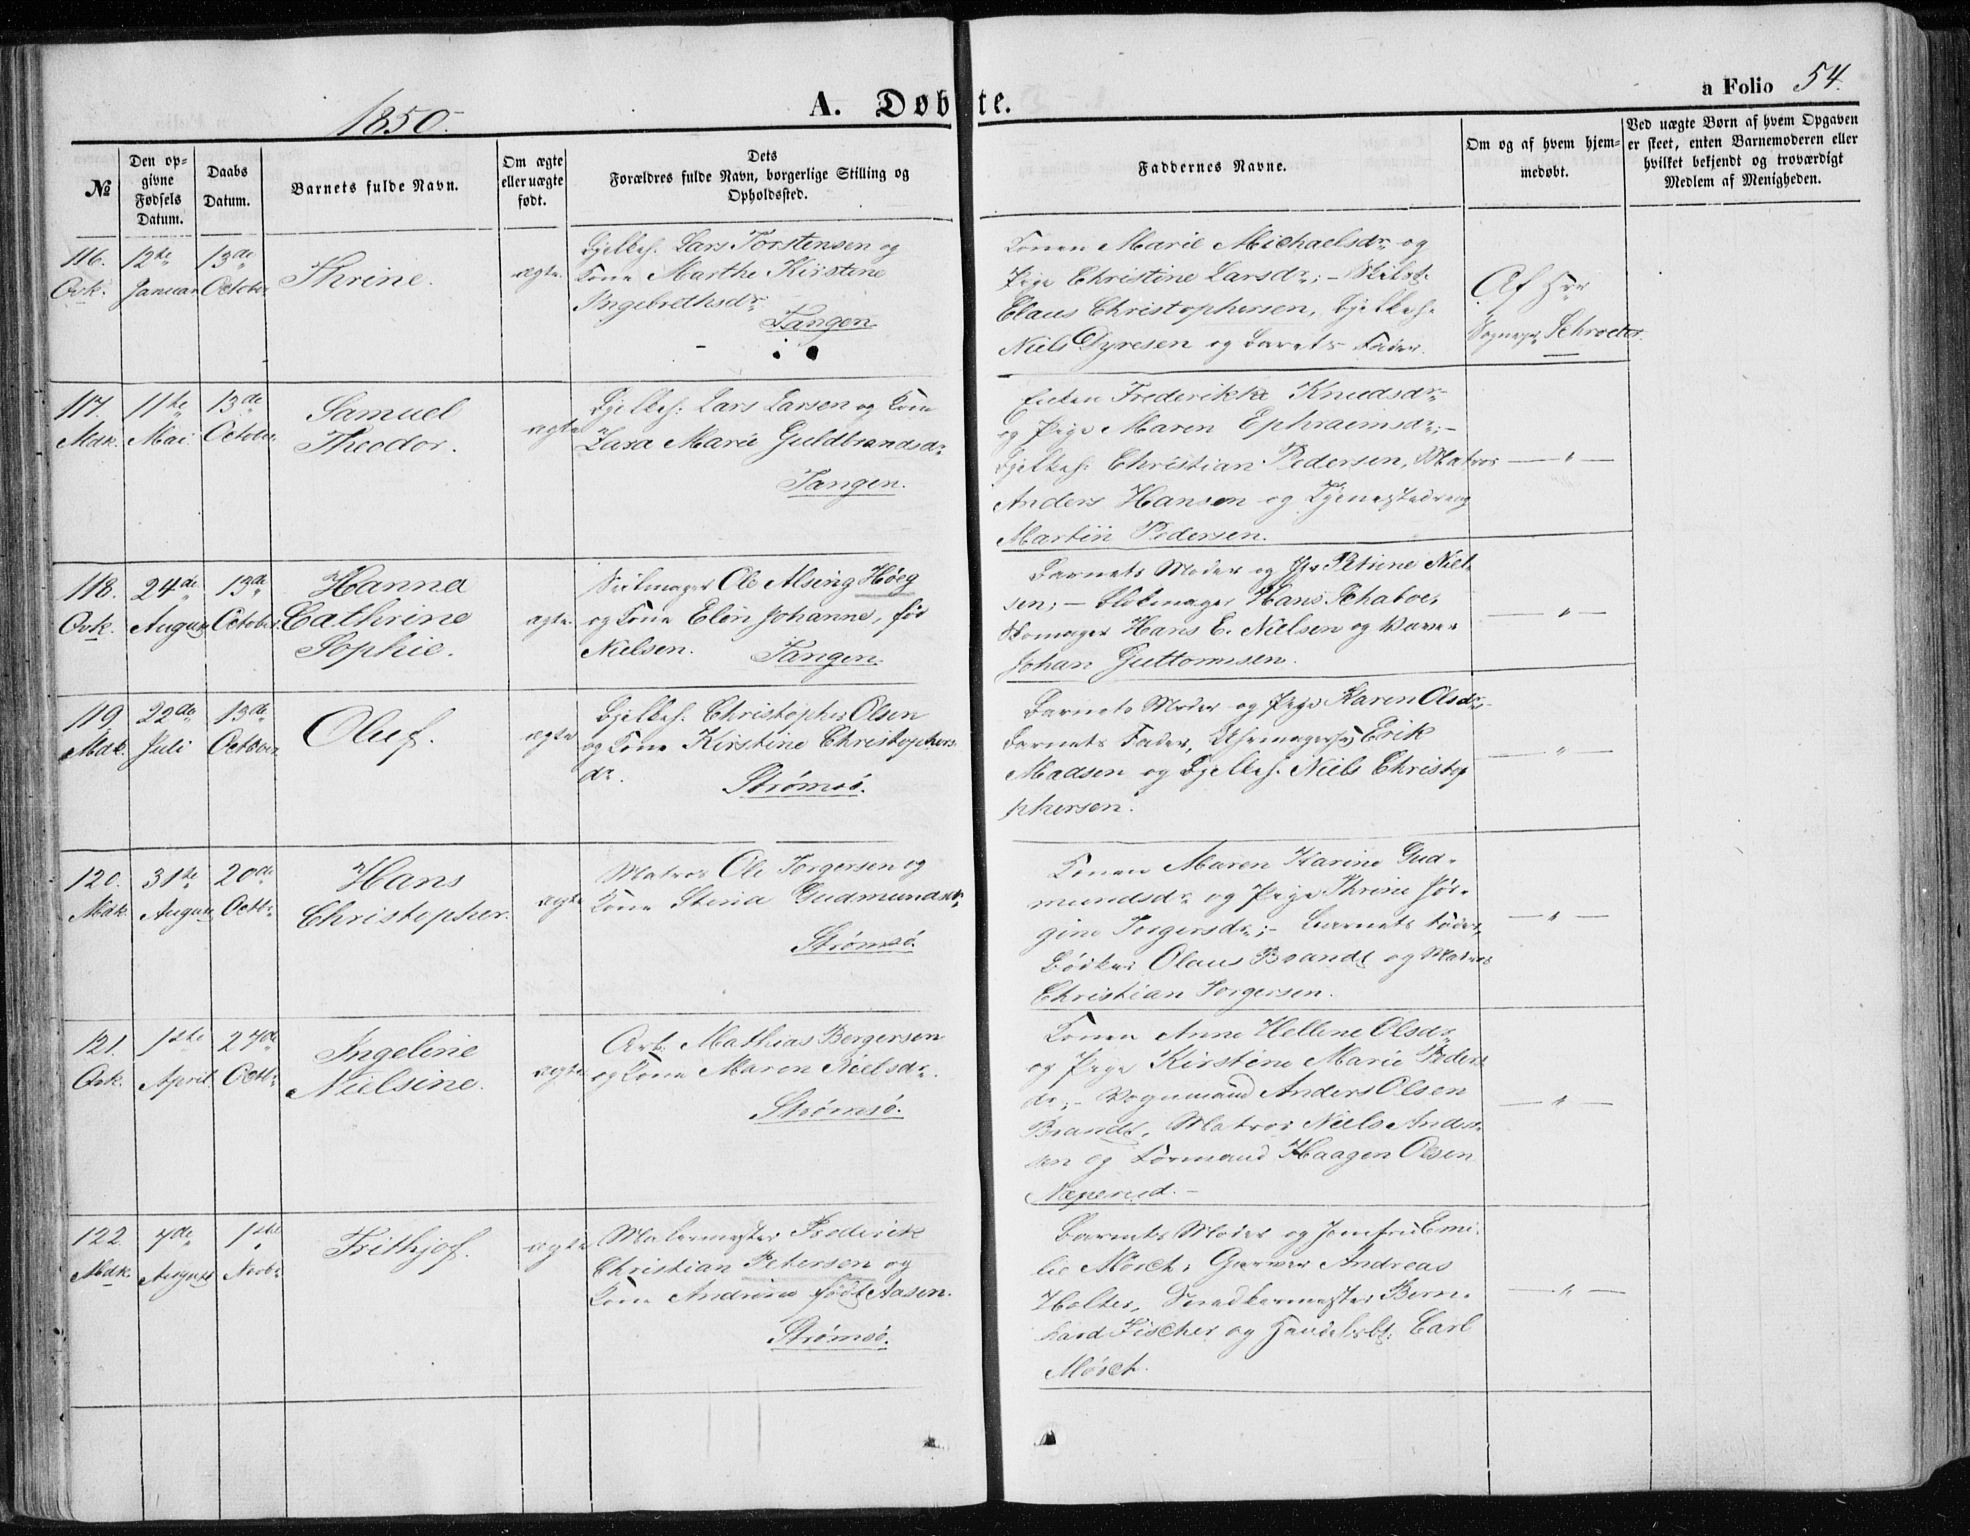 1850.
A. Døbte.
a Folio 54.
№
Den opgivne Fødsels Datum.
Daabs Datum.
Barnets fulde Navn.
Om ægte eller uægte født.
Dets Forældres fulde Navn, borgerlige Stilling og Opholdssted.
Faddernes Navne.
Om og af hvem hjemmedøbt.
Ved uægte Børn af hvem Opgaven er skeet, enten Barnemoderen eller hvilket bekjendt og troværdigt Medlem af Menigheden.
116.
Qvk.
12te
Januar
13de
October
Thrine.
ægte.
Lars Torstensen og
Kone Marthe Kirstene
Ingebrethsdr.
Tangen
Konen Marie Michaelsdr. og
Pige Christine Larsdr.;
Claus Christophersen,
Niels Dyresen og Barnets Fader.
Af Hrr
Sognepr. Schroeter.
117.
Mdk.
11te
Mai
13de
October
Samuel
Theodor.
ægte
Lars Larsen og Kone
Lara Marie Guldbrandsdr.
Tangen.
Enken Frederikke Knudsdr.
og Pige Maren Ephraimsdr.;
Christian Pedersen, Matros
Anders Hansen og Tjenestedreng
Martin Pedersen.
— " —
118.
Qvk.
24de
August
13de
October
Hanna
Cathrine
Sophie.
ægte.
Seilmager Ole Alsing Høeg
og Kone Elen Johanne, fød
Nielsen.
Tangen.
Barnets Moder og Petrine Niel-
sen; — Blokmager Hans Schaboe,
Skomager Hans E. Nielsen og
Johan Guttormsen.
— " —
119
Mdk.
22de
Juli
13de
October
Oluf.
ægte
Christopher Olsen
og Kone Kirstine Christophers
dr.
Strømsø.
Barnets Moder og Pige Karen Olsdr.;
Barnets Fader, Erik
Madsen og Niels Christop
phersen.
— " —
120.
Mdk.
31te
August
20de
Octbr
Hans
Christopher.
ægte
Matros Ole Torgersen og
Kone Stina Gudmundsdr.
Strømsø.
Konen Maren Karine Gud-
mundsdr. og Pige Thrine Jør-
gine Torgersdr.; — Barnets Fader,
Bødker Olaus Brandt og Matros
Christian Torgersen.
— " —
121.
Qvk.
1ste
April
27de
Octbr
Ingeline
Nielsine.
ægte
Arb. Mathias Bergersen
og Kone Maren Nielsdr.
Strømsø.
Konen Anne Hellene Olsdr.
og Pige Kirstine Marie Peders
dr; — Vognmand Anders Olsen
Brandt, Matros NielsAnder-
sen og Formand Haagen Olsen
Næperud. —
— " —
122
Mdk.
7de
August
1ste
Novbr
Frithjof.
ægte
Malermester Frederik
Christian Petersen og
Kone Andrine født Aasen.
Strømsø.
Barnets Moder og Jomfru Emi-
lie Mørch, Garver Andreas
Holter, Snedkermester Bern-
hard Fischer og Handelsbt. Carl
Mørch.
— " —